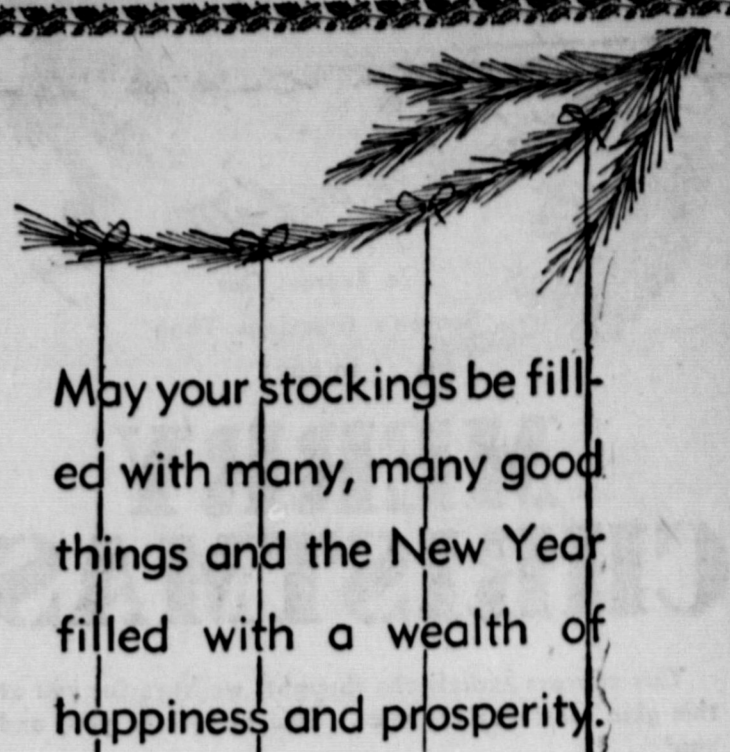 May your stockings be fill-
ed with many, many good
things and the New Year
filled with a wealth of
happiness and prosperity.